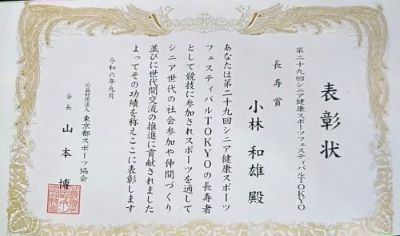 表彰状
第二十九回シニア健康スポーツフェスティバルTOKYO
長寿賞
小林 和雄 殿
あなたは第二十九回シニア健康スポーツ
フェスティバルTOKYOの長寿者
として競技に参加されスポーツを通して
シニア世代の社会参加や仲間づくり
並びに世代間交流の推進に貢献されました
よってその功績を称えここに表彰します
令和六年九月
公益財団法人 東京都スポーツ協会
会長 山本 博